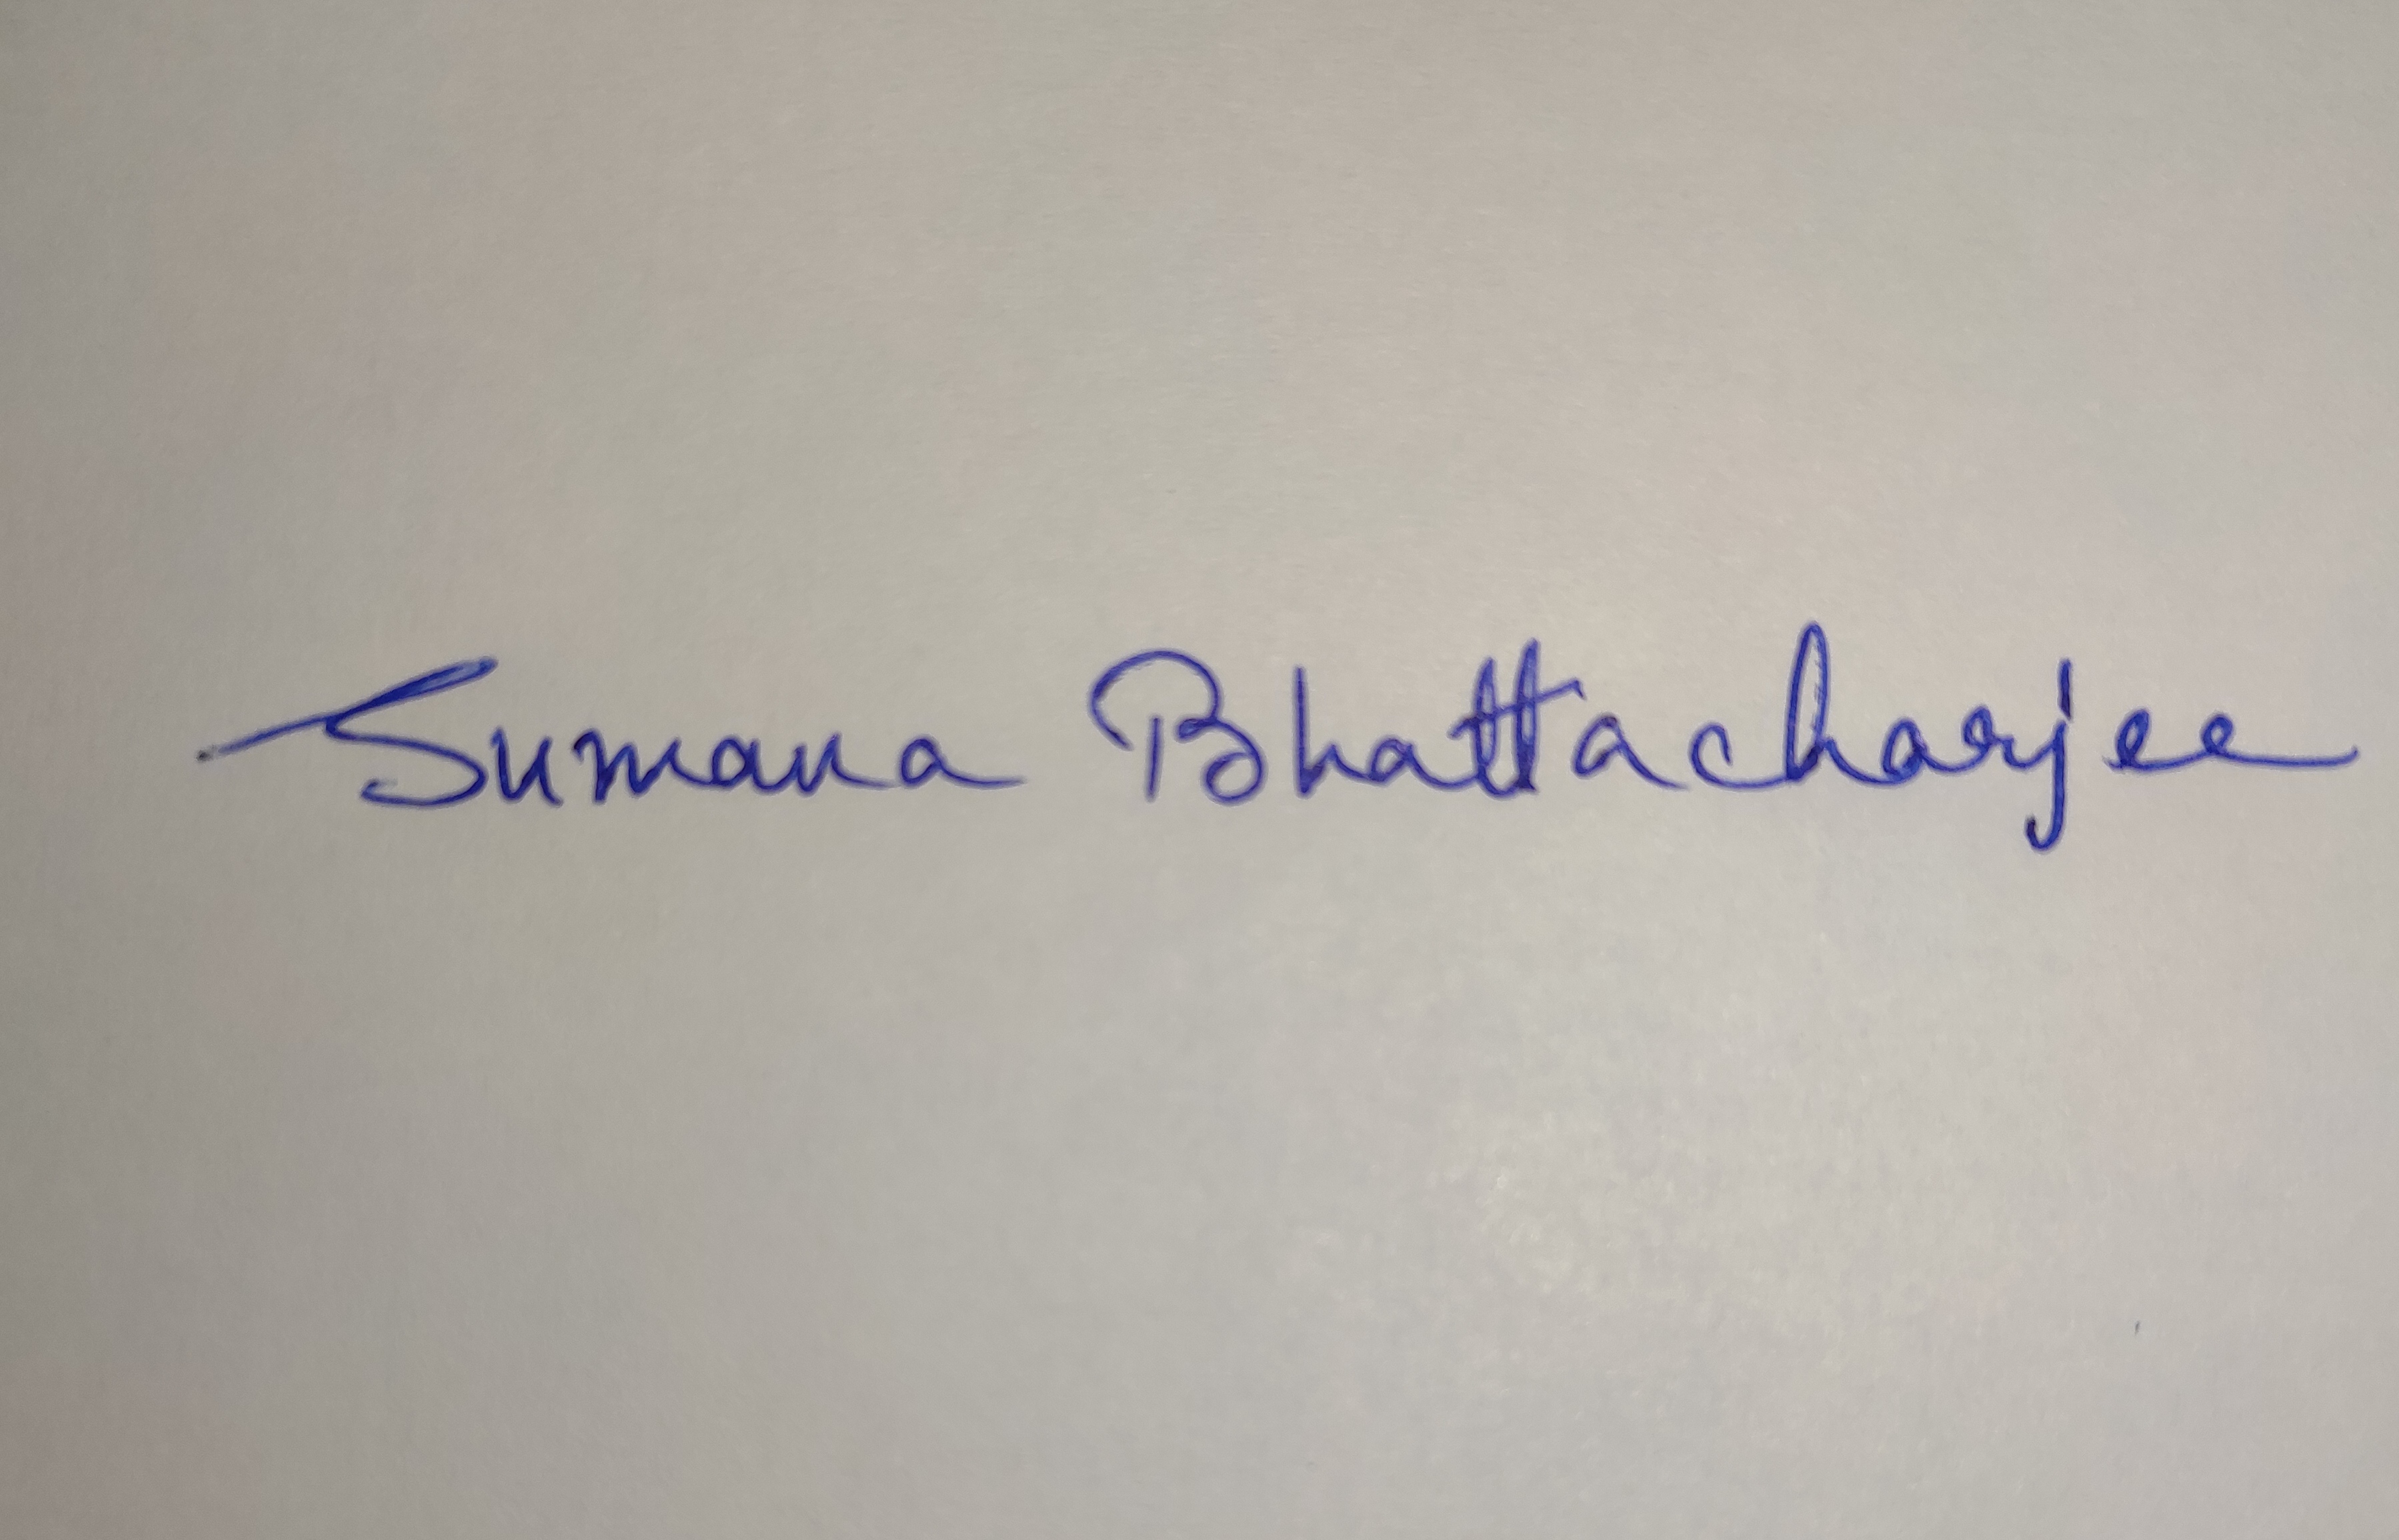 Sumana Bhattacharjee